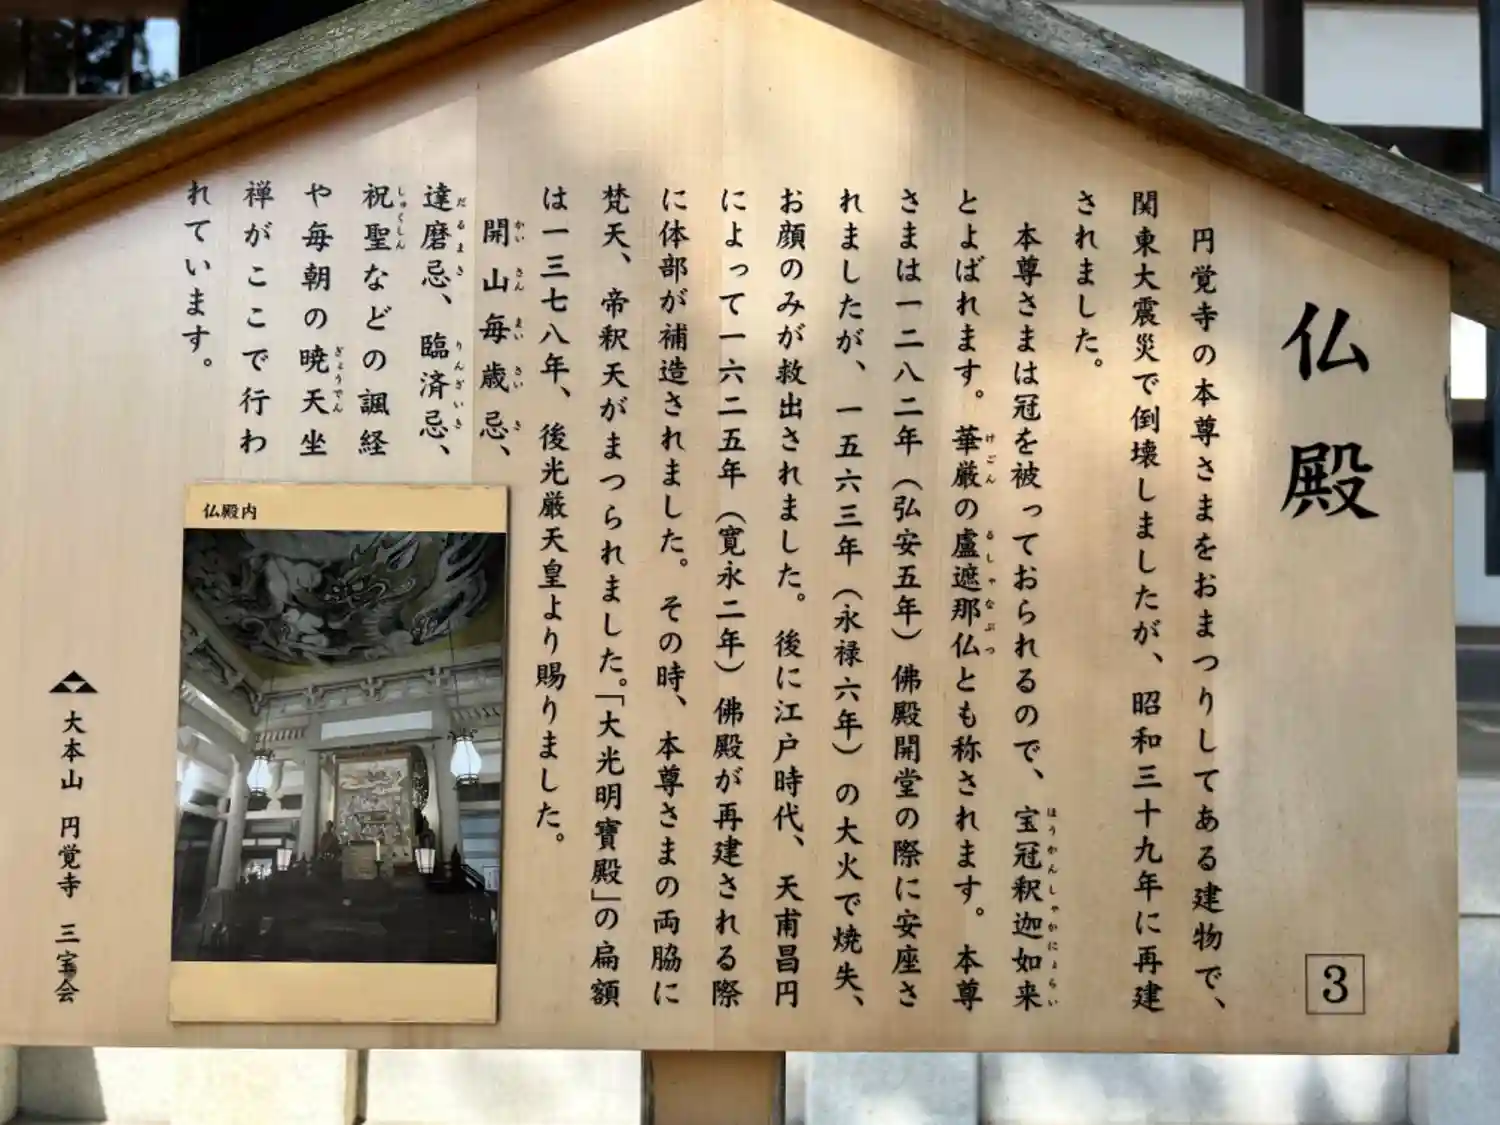 仏殿
円覚寺の本尊さまをおまつりしてある建物で、
関東大震災で倒壊しましたが、昭和三十九年に再建
されました。
本尊さまは冠を被っておられるので、宝冠釈迦如来
ほうかんしゃかにょらい
とよばれます。華厳の盧遮那仏とも称されます。本尊
けごん
るしゃなぶつ
さまは一二八二年（弘安五年）佛殿開堂の際に安座さ
れましたが、一五六三年（永禄六年）の大火で焼失、
お顔のみが救出されました。後に江戸時代、天甫昌円
によって一六二五年（寛永二年）佛殿が再建される際
に体部が補造されました。その時、本尊さまの両脇に
梵天、帝釈天がまつられました。「大光明寶殿」の扁額
は一三七八年、後光厳天皇より賜りました。
開山毎歳忌、
かいさんまいさいき
達磨忌、臨済忌、
だるまき
りんざいき
祝聖などの諷経
しゅくしん
や毎朝の暁天坐
ぎょうてん
禅がここで行わ
れています。
仏殿内
大本山 円覚寺 三宝会
3